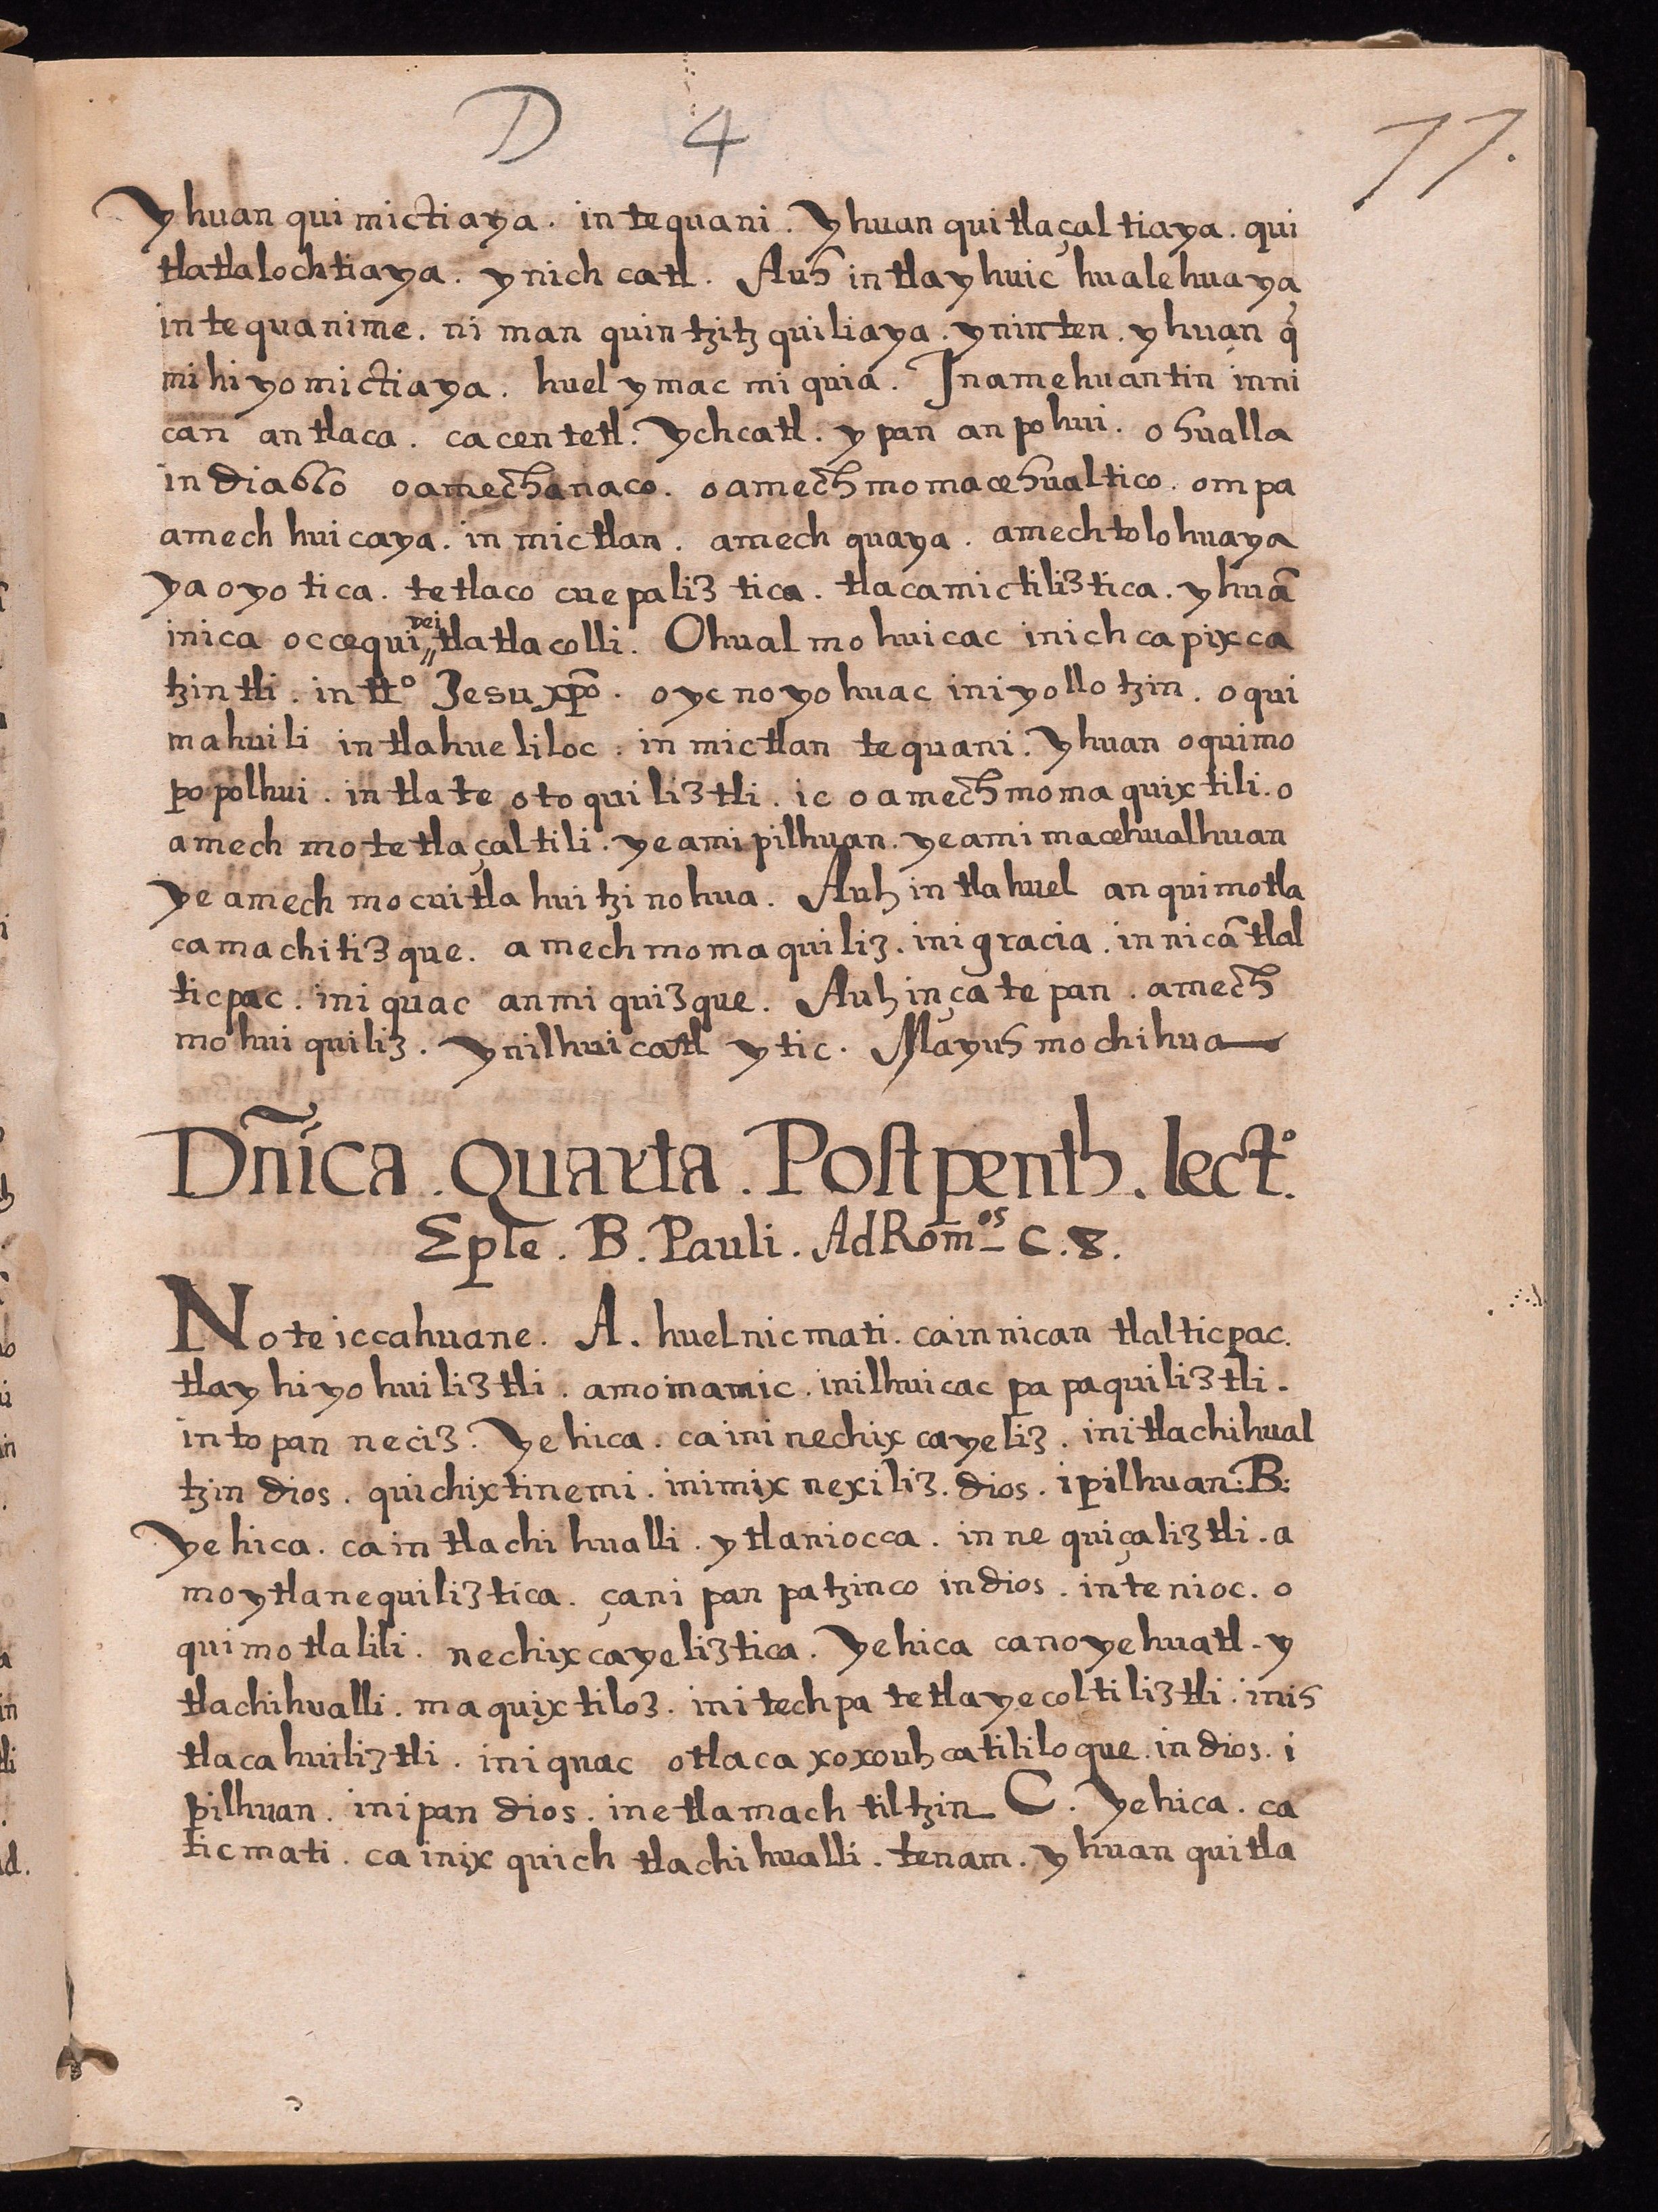 D 4 77.
Yhuan qui mictiaya. in tequani. Yhuan quitlaçaltiaya. qui
tlatlalochtiaya. ynich catl. Auh in tlayhuic hualehuaya
in tequanime. ni man quin tzitz quiliaya. yninten. yhuan q̃
mihiyomictiaya. huel ymac mi quia. Inamehuantin inni
can antlaca. cacentetl. Ychcatl. ypan anpohui. ohualla
in diablo oamechanaco. oamechmomacehualtico. ompa
amech huicaya. in mictlan. amech quaya. amechtolohuaya
yaoyotica. tetlaco cuepaliztica. tlacamictiliztica. yhuã
inica occequi dei tlatlacolli. Ohualmohuicac inichcapixca
tzintli. in ttº Jesu xp̃o. oycnoyohuac iniyollotzin. oqui
mahuili intlahueliloc. in mictlan tequani. Yhuan oquimo
popolhui. in tlateotoquiliztli. ic oamechmomaquixtili. o
amech motetlaçaltili. ye amipilhuan. ye amimacehualhuan
ye amech mocuitlahuitzinohua. Auh intlahuel anquimotla
camachitizque. amechmomaquiliz. inigracia. innicã tlal
ticpac. iniquac anmiquizque. Auh inçatepan. amech
mohuiquiliz. ynilhuicatl ytic. Mayuh mochihua
Dñica. Quarta. Post penth. lectº.
Eple. B. Pauli. Ad Romos C. 8.
Noteiccahuane. A. huelnicmati. cainnican tlalticpac.
tlayhiyohuiliztli. amoinamic. inilhuicac papaquiliztli.
intopan neciz. Yehica. ca ini nechixcayeliz. initlachihual
tzin dios. quichixtinemi. inimixnexiliz. dios. ipilhuan: B:
Yehica. cain tlachihualli. ytlaniocca. in nequiçaliztli. a
moytlanequiliztica. çanipanpatzinco indios. intenioc. o
quimotlalili. nechixcayeliztica. Yehica canoyehuatl. y
tlachihualli. maquixtiloz. initechpa tetlayecoltiliztli. inis
tlacahuiliztli. iniquac otlacaxoxouhcatililoque. in dios. i
pilhuan. inipan dios. inetlamachtiltzin C. Yehica. ca
ticmati. ca inixquich tlachihualli. tenam. yhuan quitla